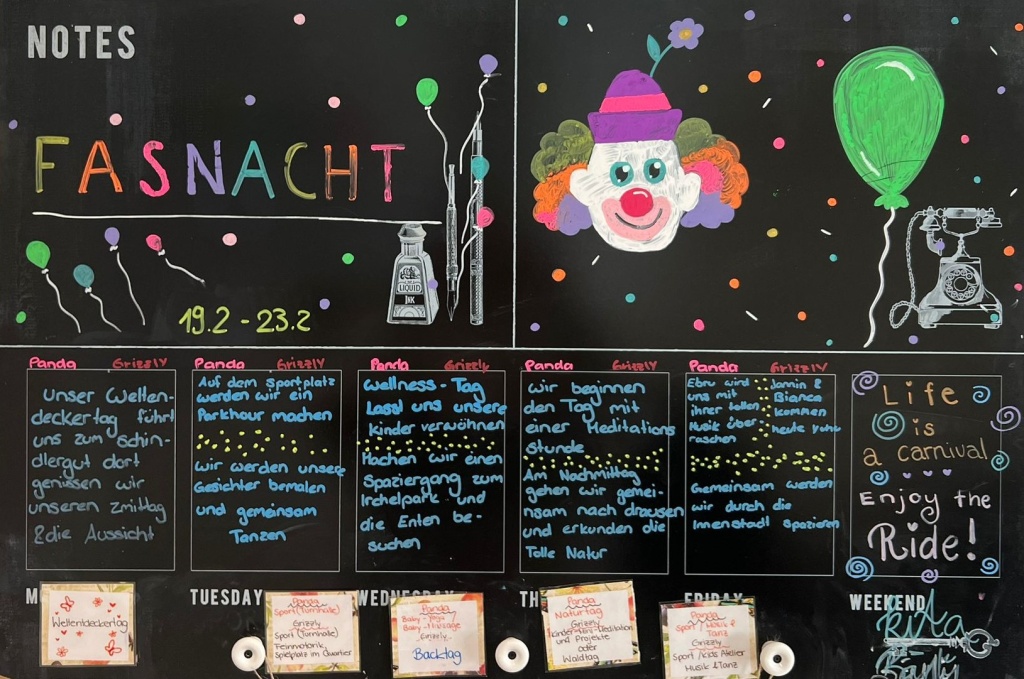 NOTES
FASNACHT
LIQUID
INK
19.2 - 23.2
Panda Grizzly
Unser Welten-
deckertag führt
uns zum Schin-
dlergut dort
geniesen wir
unseren Zmittag
& die Aussicht
Panda Grizzly
Auf dem Sportplatz
werden wir ein
Parkhour machen
Wir werden unsere
Gesichter bemalen
und gemeinsam
Tanzen
Panda Grizzly
Wellness-Tag
Lasst uns unsere
Kinder verwöhnen
Machen wir einen
Spaziergang zum
Irchelpark und
die Enten be-
suchen
Panda Grizzly
Wir beginnen
den Tag mit
einer Meditations
Stunde
Am Nachmittag
gehen wir gemei-
nsam nach drausen
und erkunden die
Tolle Natur
Panda Grizzly
Ebru wird
uns mit
ihrer tollen
Musik über
raschen
Jasmin &
Bianca
kommen
heute
Gemeinsam werden
wir durch die
Innenstadt spazieren
Life
is
a carnival
Enjoy the
Ride!
M
TUESDAY
WEDNESDAY
TH
FRIDAY
WEEKEND
Weltentdeckertag
Panda
Sport (Turnhalle)
Grizzly
Sport (Turnhalle)
Feinmotorik,
Spielplatz im Quartier
Panda
Baby-Yoga
Baby-Massage
Grizzly
Backtag
Panda
Naturtag
Grizzly
Kinder-Yoga/Meditation
und Projekte
oder
Waldtag
Panda
Sport / Musik &
Tanz
Grizzly
Sport / Kids Atelier
Musik & Tanz